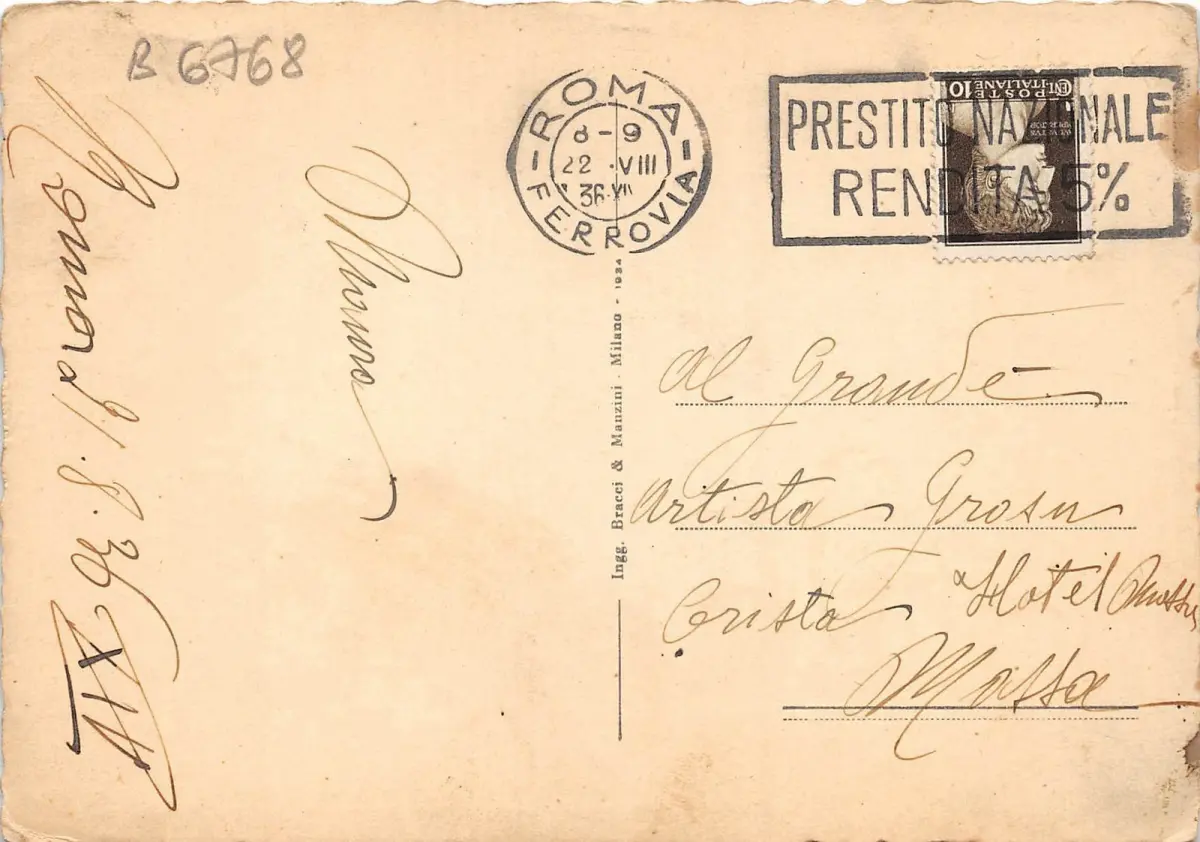 B 6768
ROMA
8-9
22 · VIII
36·XI
FERROVIA
PRESTITO NAZIONALE
RENDITA 5%
POSTE
ITALIANE
CENT 10
Roma 21.8.36
XIV
Ingg. Bracci & Manzini - Milano - 1934
Al Grande
Artista Grosu
Crista Hotel
Massa